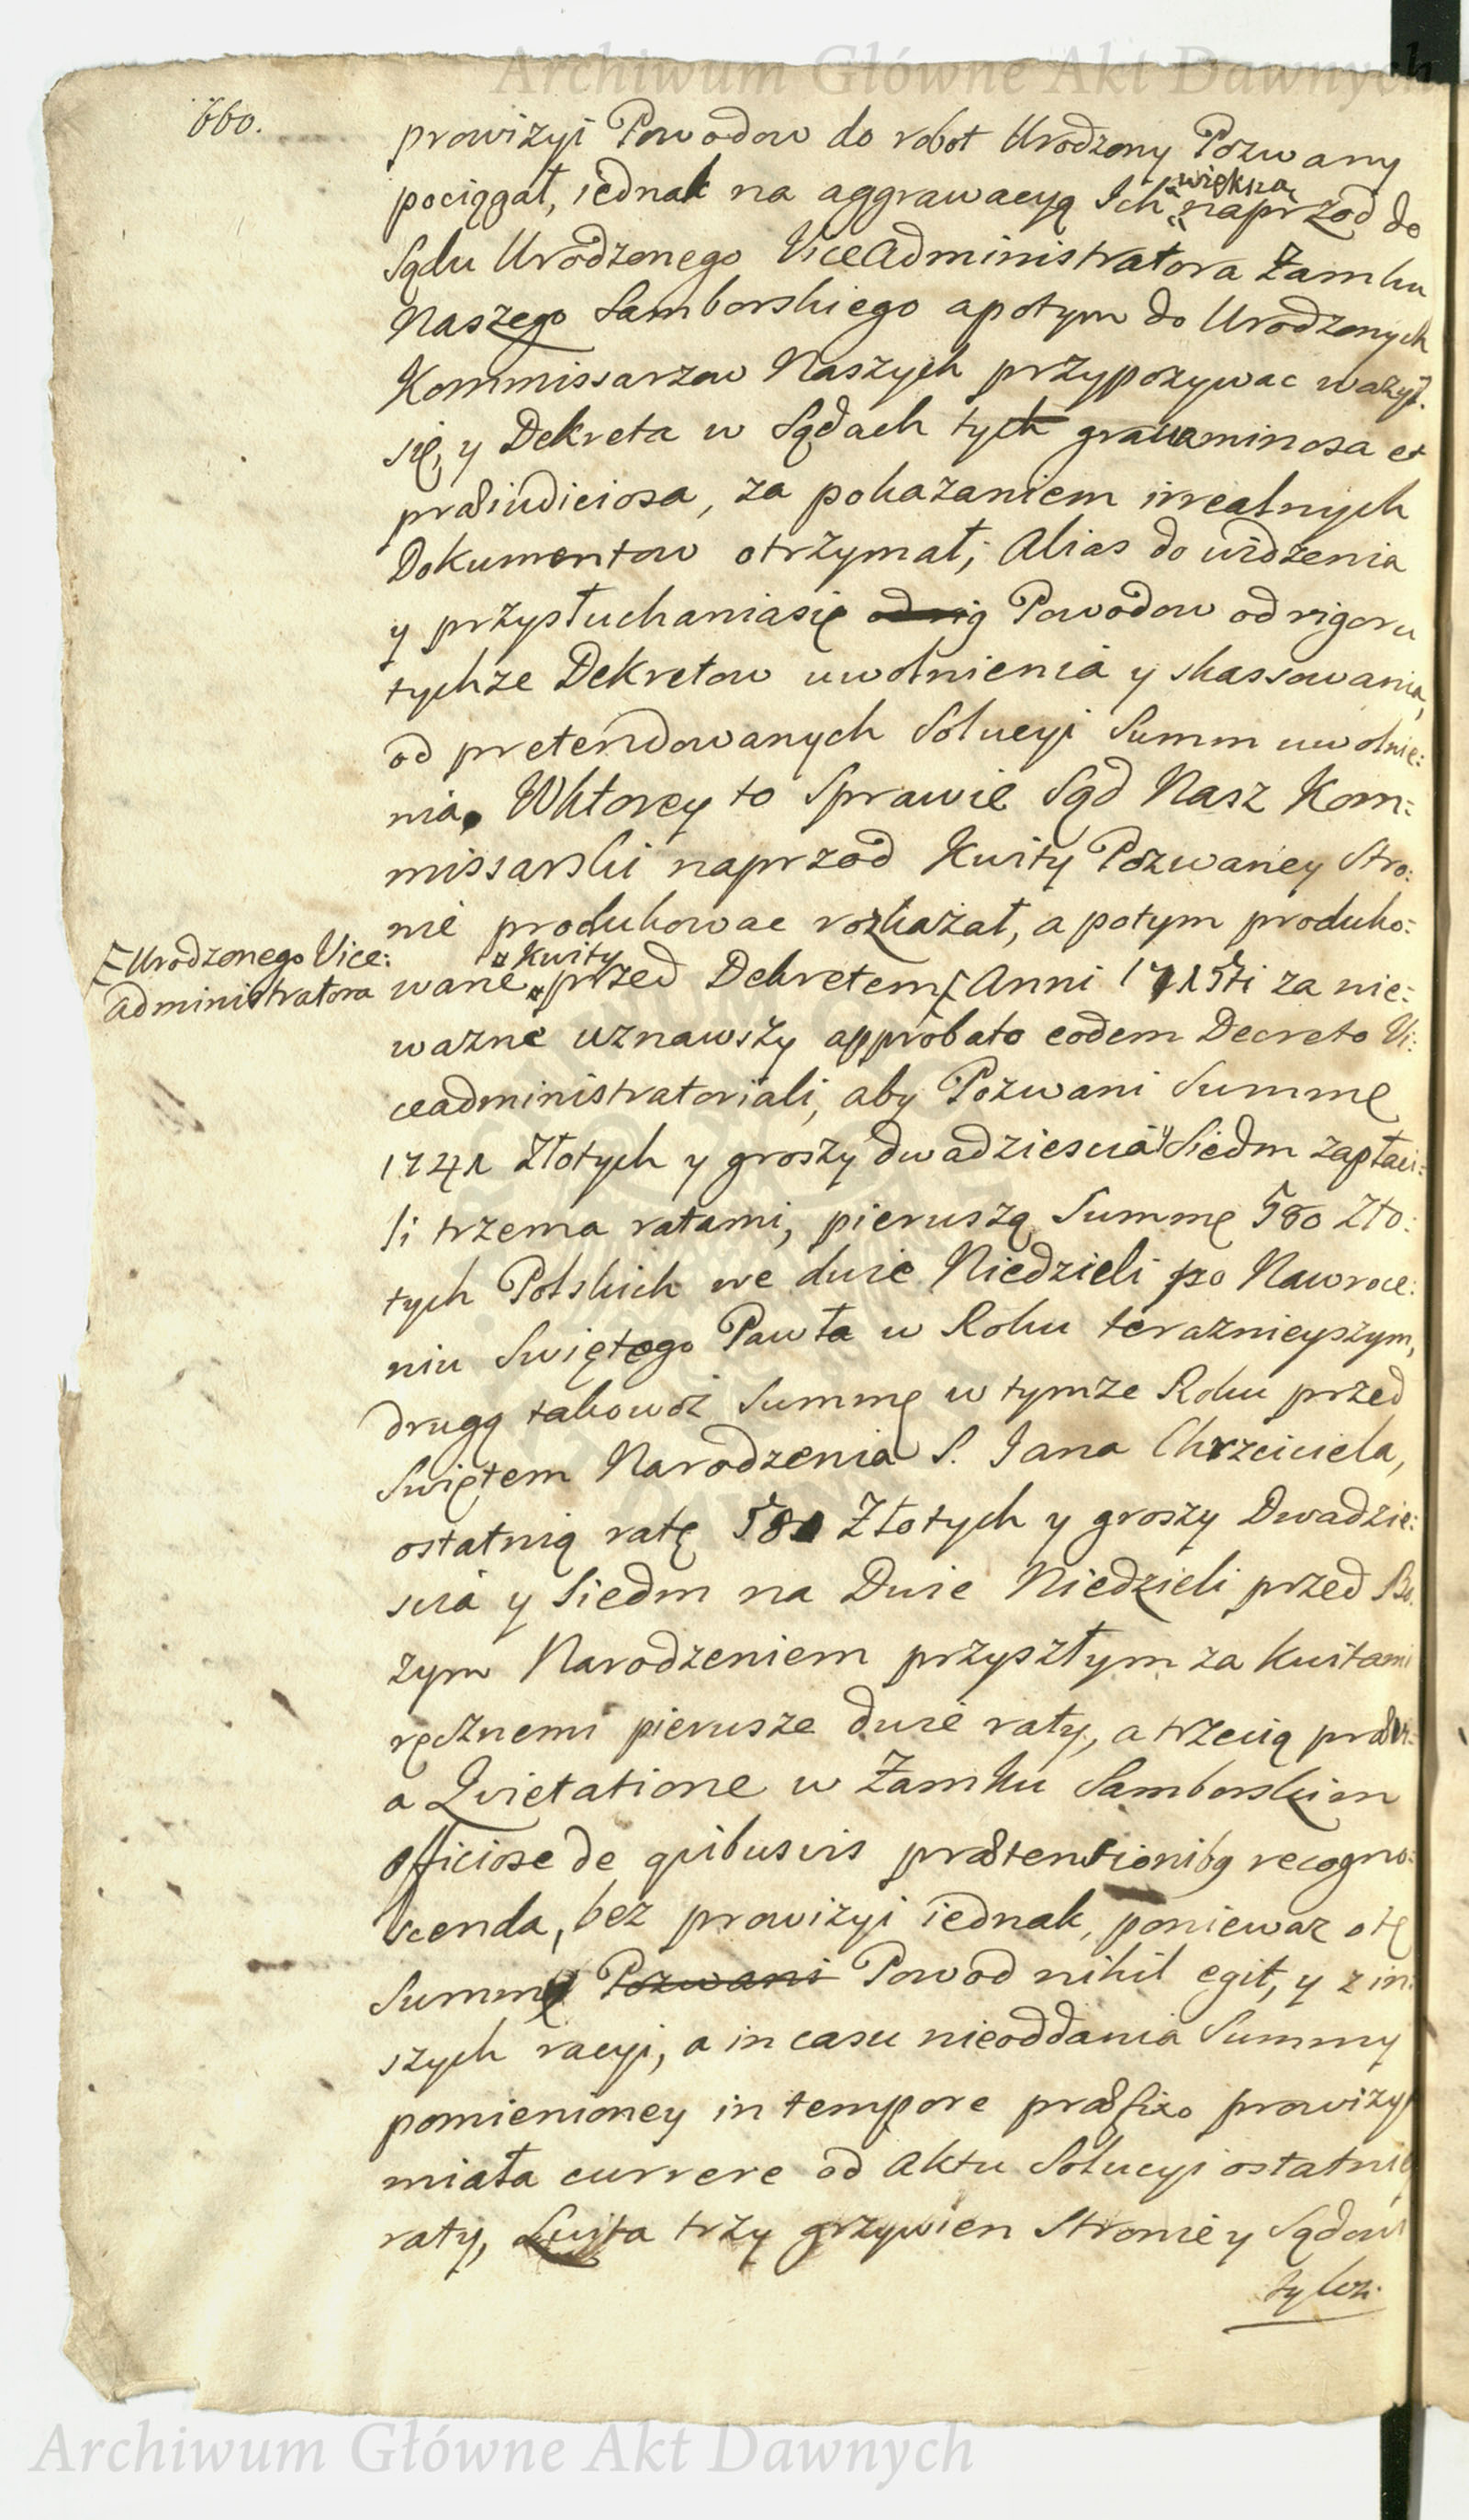 Archiwum Główne Akt Dawnych
660.
prowizyi Powodow do robot Urodzony Pozwany
pociągał, iednak na aggrawacyą Ich większą naprzod do
Sądu Urodzonego ViceAdministratora Zamku
Naszego Samborskiego apotym do Urodzonych
Kommissarzow Naszych przypozywac wazył
się, y Dekreta w Sądach tych grauaminosa et
præiudiciosa, za pokazaniem irrealnych
Dokumentow otrzymał; Alias do widzenia
y przysłuchaniasię Powodow od rigoru
tychze Dekretow uwolnienia y skassowania,
od pretendowanych Solucyi Summ uwolnie:
nia. Wktorey to Sprawie Sąd Nasz Kom:
missarski naprzod Kwity Pozwaney Stro:
nie produkowac rozkazał, a potym produko:
[Urodzonego Vice:
administratora
wane Kwity przed Dekretem [ Anni 1715ti za nie:
wazne uznawszy approbato eodem Decreto Vi:
ceadministratoriali, aby Pozwani Summę
1741 Złotych y groszy dwadziescia y Siedm zapłaci:
li trzema ratami, pierwszą Summę 580 Zło:
tych Polskich we dwie Niedzieli po Nawroce:
niu Swiętego Pawła w Roku teraznieyszym,
drugą takowąż Summę w tymze Roku przed
Swiętem Narodzenia S. Jana Chrzciciela,
ostatnią ratę 581 Złotych y groszy Dwadzie:
scia y Siedm na Dwie Niedzieli przed Bo:
zym Narodzeniem przyszłym za kwitami
ręcznemi pierwsze dwie raty, a trzecią præui:
a Quietatione w Zamku Samborskim
officiose de quibusvis prætensionibq recogno:
scenda, bez prowizyi iednak, poniewaz o tę
Summę Pozwani Powod nihil egit, y z in:
szych racyi, a in casu nieoddania Summy
pomienioney in tempore præfixo prowizya
miała currere od Aktu Solucyi ostatniey
raty, Luita trzy grzywien Stronie y Sądowi
tylez.
Archiwum Główne Akt Dawnych